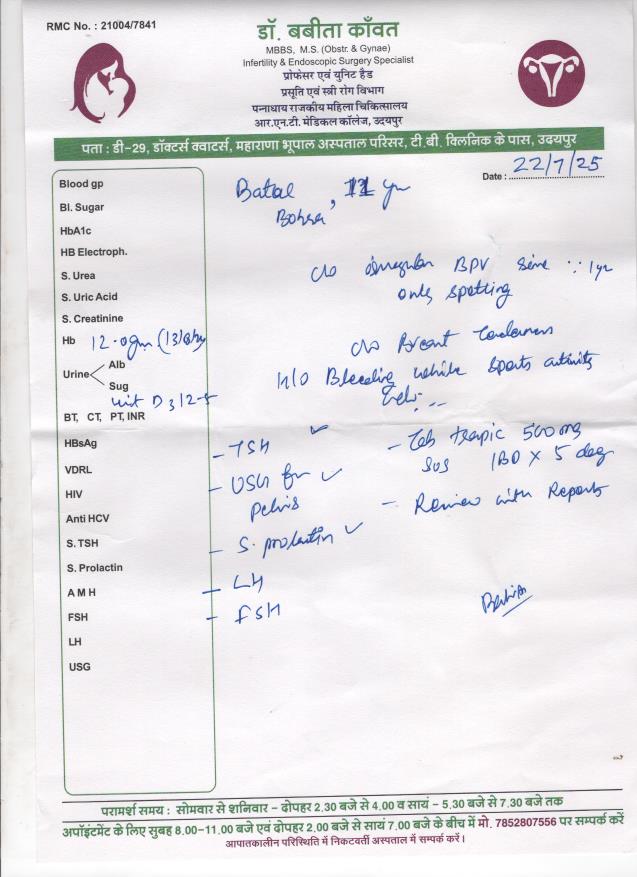 RMC No. : 21004/7841
डॉ. बबीता काँवत
MBBS, M.S. (Obstr. & Gynae)
Infertility & Endoscopic Surgery Specialist
प्रोफेसर एवं युनिट हैड
प्रसूति एवं स्त्री रोग विभाग
पन्नाधाय राजकीय महिला चिकित्सालय
आर.एन.टी. मेडिकल कॉलेज, उदयपुर
पता : डी-29, डॉक्टर्स क्वाटर्स, महाराणा भूपाल अस्पताल परिसर, टी.बी. क्लिनिक के पास, उदयपुर
Date : 22/7/25
Blood gp
Bl. Sugar
HbA1c
HB Electroph.
S. Urea
S. Uric Acid
S. Creatinine
Hb 12.0gm
Urine Alb
Sug
BT, CT, PT, INR
HBsAg
VDRL
HIV
Anti HCV
S. TSH
S. Prolactin
A M H
FSH
LH
USG
Batul, 11 yr
Bohra
c/o irregular BPV since 1yr
only spotting
c/o Breast Tenderness
H/O Bleeding while sports activity
- TSH
- USG for
Pelvis
- S. prolactin
- LH
- FSH
- Tab 500 mg
SOS 1BD x 5 day
- Review with Reports
परामर्श समय : सोमवार से शनिवार - दोपहर 2.30 बजे से 4.00 व सायं - 5.30 बजे से 7.30 बजे तक
अपॉइंटमेंट के लिए सुबह 8.00-11.00 बजे एवं दोपहर 2.00 बजे से सायं 7.00 बजे के बीच में मो. 7852807556 पर सम्पर्क करें
आपातकालीन परिस्थिति में निकटवर्ती अस्पताल में सम्पर्क करें।